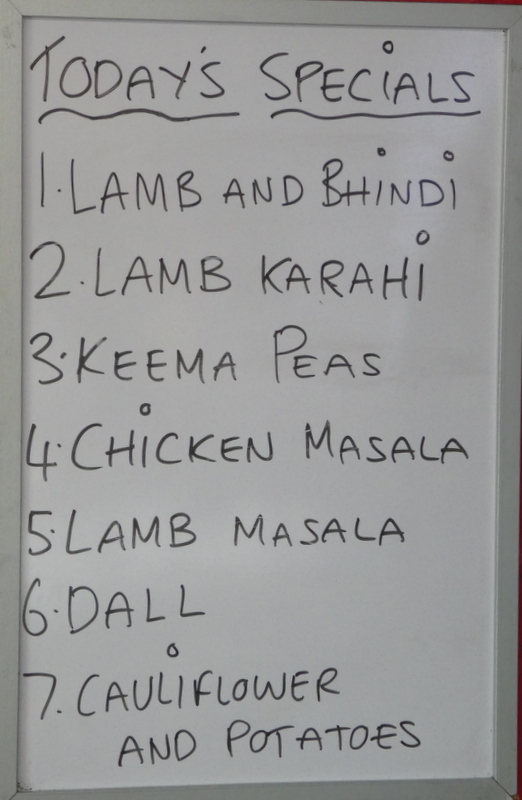 TODAY'S SPECIALS
1. LAMB AND BHINDI
2. LAMB KARAHI
3. KEEMA PEAS
4. CHICKEN MASALA
5. LAMB MASALA
6. DALL
7. CAULIFLOWER
AND POTATOES